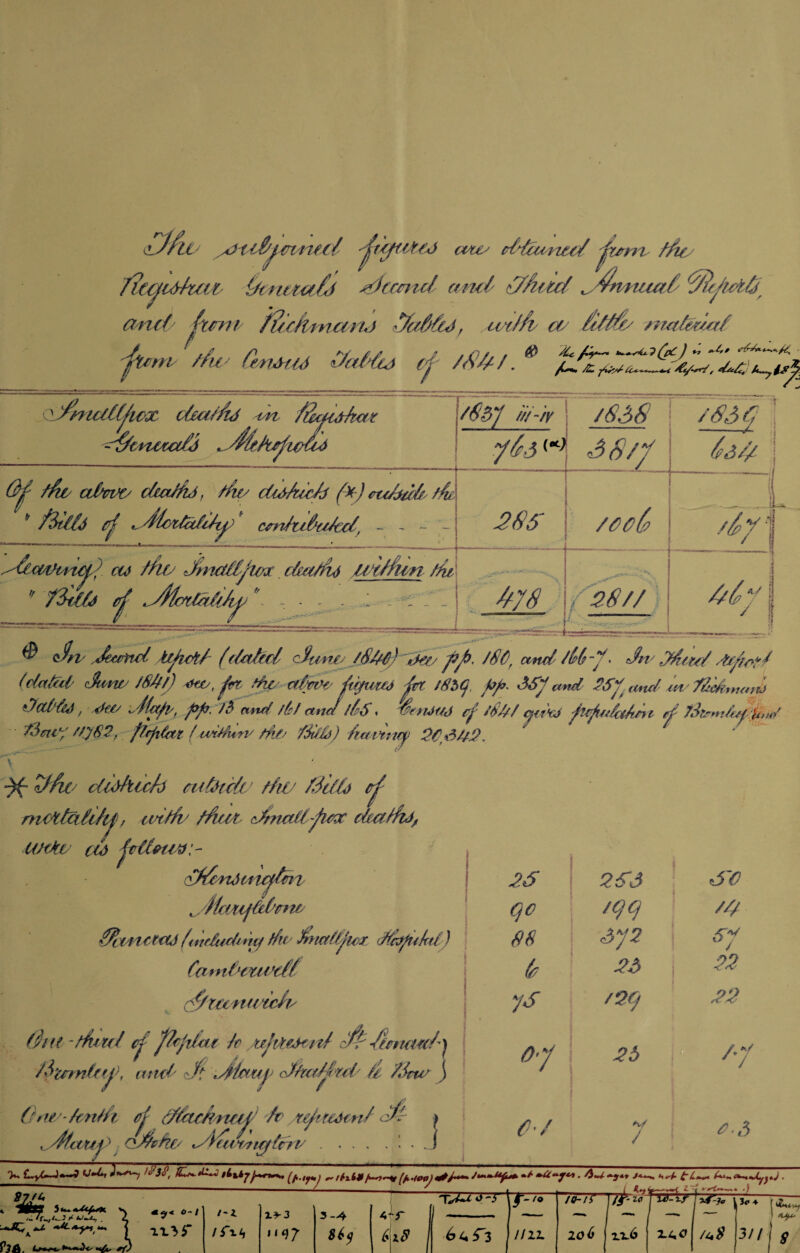 The subjoined figures are obtained from the
Registrar Generals Second and Third Annual Reports,
and from Rickmans Tables, with a little material
from the Census Tables of 1841.
Smallpox deaths in Registrar 1837 iii-iv 1838 1839
Generals Metropolis 763 (α) 3817 634
Of the above deaths, the districts (*) outside the
" Bills of Mortality" contributed, - - - - 285 1006 167
Leaving as the Smallpox deaths within the
" Bills of Mortality" 478 2811 467
⊕ In Second Report (dated June 1840) see pp. 180, and 166-7. In Third Report
(dated June 1841) see, for the above figures for 1839, pp. 357 and 257, and in Rickmans
Tables, see Map, pp. 13 and 161 and 165. Census of 1841 gives population of Bromley and
Bow; 11782, Poplar (within the Bills) having 20,342.
* The districts outside the Bills of
mortality, with their Small-pox deaths,
were as follows:-
Kensington 25 253 50
Marylebone 90 199 14
Pancras (including the Smallpox Hospital) 88 372 57
Camberwell 6 23 22
Greenwich 75 129 22
One-third of Poplar to represent St Leonard
Bromley, and St Mary Stratford le Bow 0.7 23 1.7
One-tenth of Hackney to represent St
Mary, Stoke Newington 0.1 7 0.3
age 0-1 1-2 2-3 3-4 4-5 Total 0-5 5-10 10-15 15-20 20-25 25-30
2255 1514 1197 869 618 6453 1122 206 226 240 148 311 8